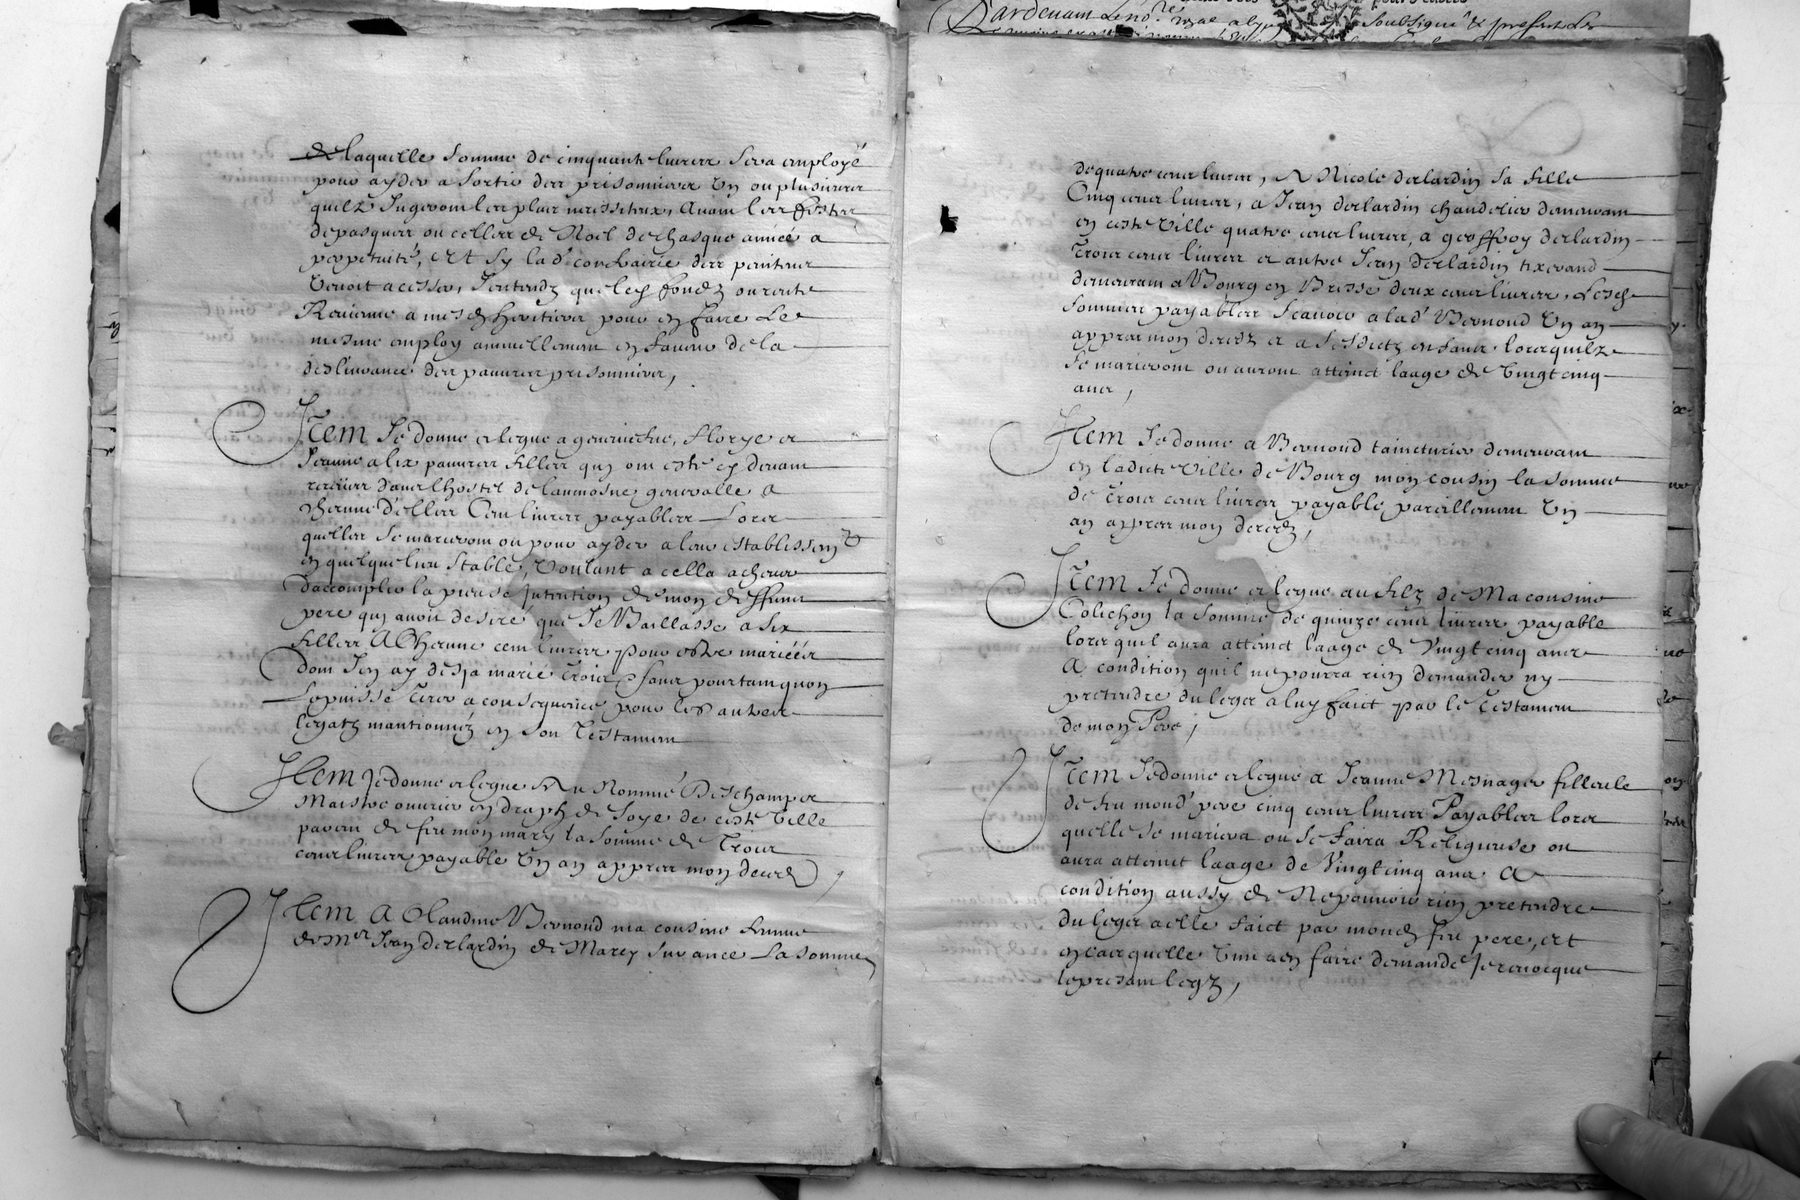 Pardevant Le no.re soubsigné &
de laquelle somme de cinquante livres sera employé
pour ayder a sortir des prisonniers un ou plusieurs
quilz Jugeront les plus necessiteux, avant les festes
de pasques ou celles de Noel de chasque année a
perpetuité, ert sy lad.e confrairie des penitens
venoit a cesser, Jentendz que les fondz ou rente
Revienne a mesd heritiers pour en faire Le
mesme employ annuellement en faveur de la
deslivrance des pauvres prisonniers,
Item Je donne et legue a geneviefve, florye et
Jeanne alix pauvres filles quy ont esté cy devant
receues dans lhostel de laumosne generalle a
chacune d'elles Cent livres payables Lors
quelles se marieront ou pour ayder a leur establissem.t
en quelque lieu stable, voulant a cella achever
daccomplir la pieuse Jntention de mon deffunct
pere quy avoit desiré que Je Baillasse a six
filles A Chacune cent livres pour estre mariéés
dont Jen ay desja marié trois, sans pourtant quon
Le puisse tirer a consequence pour les autres
legatz mantionnéz en son Testament
Item Je donne et legue Au Nommé Deschamps
Maistre ouvrier en draptz de soye de ceste ville
parent de feu mon mary la somme de Trois
cens livres payable un an appres mon decedz,
Item A Claudine Bernond ma cousine femme
de M.er Jean Deslardin de Marcy sur ance La somme
de quatre cens livres, A Nicole deslardin sa fille
Cinq cens livres, a Jean deslardin chandelier demeurant
en ceste ville quatre cens livres, a geoffroy deslardin
trois cens livres et autre Jean deslardin tixerand
demeurant a Bourg en Bresse deux cens livres, Lesd
sommes payables scavoir a lad.e Bernond un an
appres mon decedz et a sesdictz enfans lors quilz
se marieront ou auront atteint laage de vingt cinq
ans,
Item Je donne a Bernond taincturier demeurant
en ladicte ville de Bourg mon cousin la somme
de trois cens livres payable pareillement un
an appres mon decedz,
Item Je donne et legue au filz de Ma cousine
Colichon la somme de quinze cens livres payable
lors quil aura atteinct laage de vingt cinq ans
A condition quil ne pourra rien demander ny
pretendre du legat a luy faict par le testament
de mon Pere,
Item Je donne et legue a Jeanne Mesnager filleule
de feu mond.t pere cinq cens livres Payables lors
quelle se mariera ou se faira Religieuse ou
aura atteinct laage de vingt cinq ans A
condition aussy de Ne pouvoir rien pretendre
du legat a elle faict par mond feu pere, ert
en cas quelle vint a en faire demande Je revocque
le present legz,